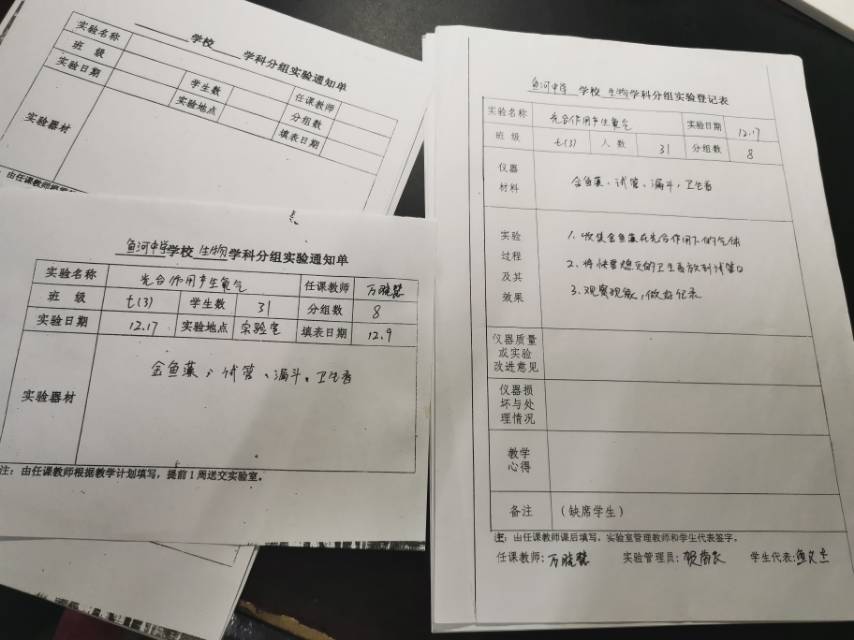 学校 学科分组实验通知单
实验名称
班 级 学生数 任课教师
实验日期 实验地点 分组数
填表日期
实验器材
鱼河中学学校 生物学科分组实验通知单
实验名称 光合作用产生氧气 任课教师 万晓慧
班 级 七(3) 学生数 31 分组数 8
实验日期 12.17 实验地点 实验室 填表日期 12.9
实验器材 金鱼藻、试管、漏斗、卫生香
注：由任课教师根据教学计划填写，提前1周送交实验室。
鱼河中学 学校 生物学科分组实验登记表
实验名称 光合作用产生氧气 实验日期 12.17
班 级 七(3) 人 数 31 分组数 8
仪器
材料
金鱼藻、试管、漏斗、卫生香
实验
过程
及其
效果
1. 收集金鱼藻在光合作用下的气体
2. 将快要熄灭的卫生香放到试管口
3. 观察现象，做好记录
仪器质量
或实验
改进意见
仪器损
坏与处
理情况
教学
心得
备注 （缺席学生）
注：由任课教师课后填写，实验室管理教师和学生代表签字。
任课教师：万晓慧 实验管理员： 学生代表：